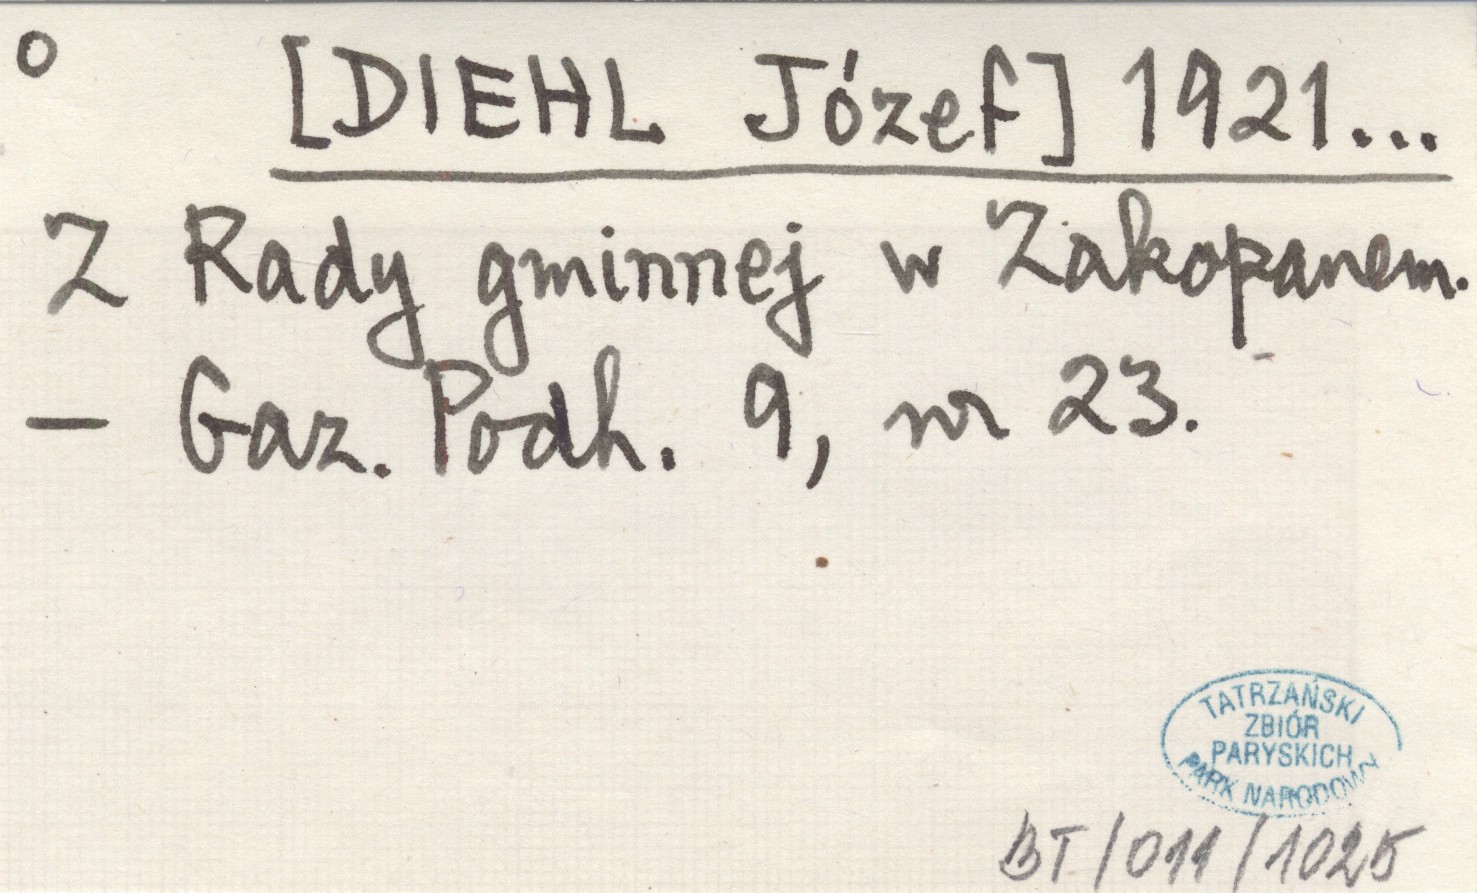 o [DIEHL Józef] 1921...
Z Rady gminnej w Zakopanem.
– Gaz. Podh. 9, nr 23.
TATRZAŃSKI
ZBIÓR
PARYSKICH
PARK NARODOWY
BT/011/1025